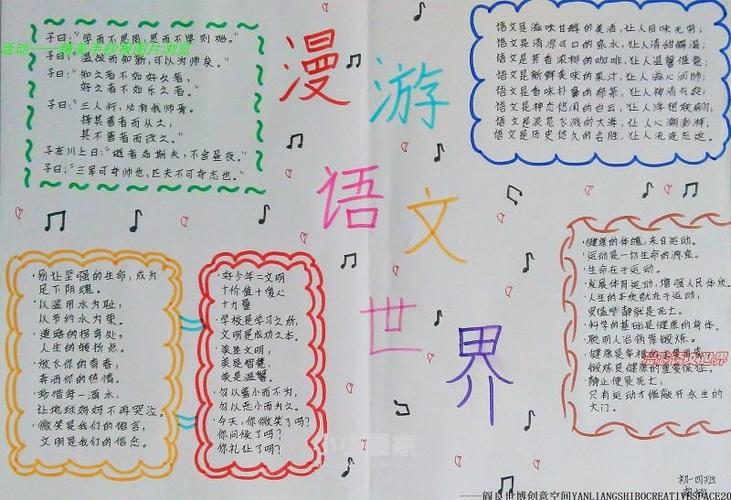 漫游
语文
世界
子曰："学而不思罔,思而不学则殆。"
温故而知新,可以为师矣。"
子曰："知之者不如好之者,
好之者不如乐之者。"
子曰："三人行,必有我师焉。
择其善者而从之,
其不善者而改之。"
子在川上曰："逝者如斯夫,不舍昼夜。"
子曰："三军可夺帅也,匹夫不可夺志也。"
语文是滋味甘醇的美酒,让人回味无穷;
语文是清凉可口的泉水,让人清甜解渴;
语文是芳香浓郁的咖啡,让人温馨惬意;
语文是新鲜美味的果汁,让人沁心润肺;
语文是香味扑鼻的绿茶,让人神清气爽;
语文是神态悠闲的白云,让人浮想联翩;
语文是浪花飞溅的大海,让人心潮澎湃;
语文是历史悠久的名胜,让人流连忘返。
·别让坚强的生命,成为
足下阴魂。
·以滥用水为耻,
以节约水为荣。
·道路的拐弯处,
人生的转折点。
·放飞你的青春,
挥洒你的热情。
·珍惜每一滴水,
让地球妈妈不再哭泣。
·微笑是我们的语言,
文明是我们的信念。
·好少年=文明
+价值+爱心
+力量
·学校是学习之所,
文明是成功之本。
·美是文明,
美是智慧,
美是温馨。
·勿以善小而不为,
勿以恶小而为之。
·今天,你微笑了吗?
你问候了吗?
你礼让了吗?
·健康的体魄,来自运动。
·运动是一切生命的源泉。
·生命在于运动。
·发展体育运动,增强人民体质。
·人生的本质就在于运动,
安谧宁静就是死亡。
·科学的基础是健康的身体。
·聪明人治病靠锻炼。
锻炼是健康的重要保证。
·静止便是死亡,
只有运动才能敲开永生的
大门。
初一四班
——阎良世博创意空间YANLIANGSHIBOCREATIVESPACE20